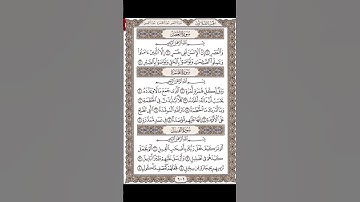 سُورَةُ العَصْرِ
بِسْمِ ٱللَّهِ ٱلرَّحْمَٰنِ ٱلرَّحِيمِ
وَٱلْعَصْرِ ١ إِنَّ ٱلْإِنسَٰنَ لَفِى خُسْرٍ ٢ إِلَّا ٱلَّذِينَ ءَامَنُوا۟
وَعَمِلُوا۟ ٱلصَّٰلِحَٰتِ وَتَوَاصَوْا۟ بِٱلْحَقِّ وَتَوَاصَوْا۟ بِٱلصَّبْرِ ٣
سُورَةُ الهُمَزَةِ
بِسْمِ ٱللَّهِ ٱلرَّحْمَٰنِ ٱلرَّحِيمِ
وَيْلٌ لِّكُلِّ هُمَزَةٍ لُّمَزَةٍ ١ ٱلَّذِى جَمَعَ مَالًا وَعَدَّدَهُۥ ٢
يَحْسَبُ أَنَّ مَالَهُۥٓ أَخْلَدَهُۥ ٣ كَلَّا لَيُنۢبَذَنَّ فِى ٱلْحُطَمَةِ ٤
وَمَآ أَدْرَىٰكَ مَا ٱلْحُطَمَةُ ٥ نَارُ ٱللَّهِ ٱلْمُوقَدَةُ ٦ ٱلَّتِى تَطَّلِعُ
عَلَى ٱلْأَفْـِٔدَةِ ٧ إِنَّهَا عَلَيْهِم مُّؤْصَدَةٌ ٨ فِى عَمَدٍ مُّمَدَّدَةٍ ٩
سُورَةُ الفِيلِ
بِسْمِ ٱللَّهِ ٱلرَّحْمَٰنِ ٱلرَّحِيمِ
أَلَمْ تَرَ كَيْفَ فَعَلَ رَبُّكَ بِأَصْحَٰبِ ٱلْفِيلِ ١ أَلَمْ يَجْعَلْ
كَيْدَهُمْ فِى تَضْلِيلٍ ٢ وَأَرْسَلَ عَلَيْهِمْ طَيْرًا أَبَابِيلَ ٣
تَرْمِيهِم بِحِجَارَةٍ مِّن سِجِّيلٍ ٤ فَجَعَلَهُمْ كَعَصْفٍ مَّأْكُولٍۭ ٥
٦٠١